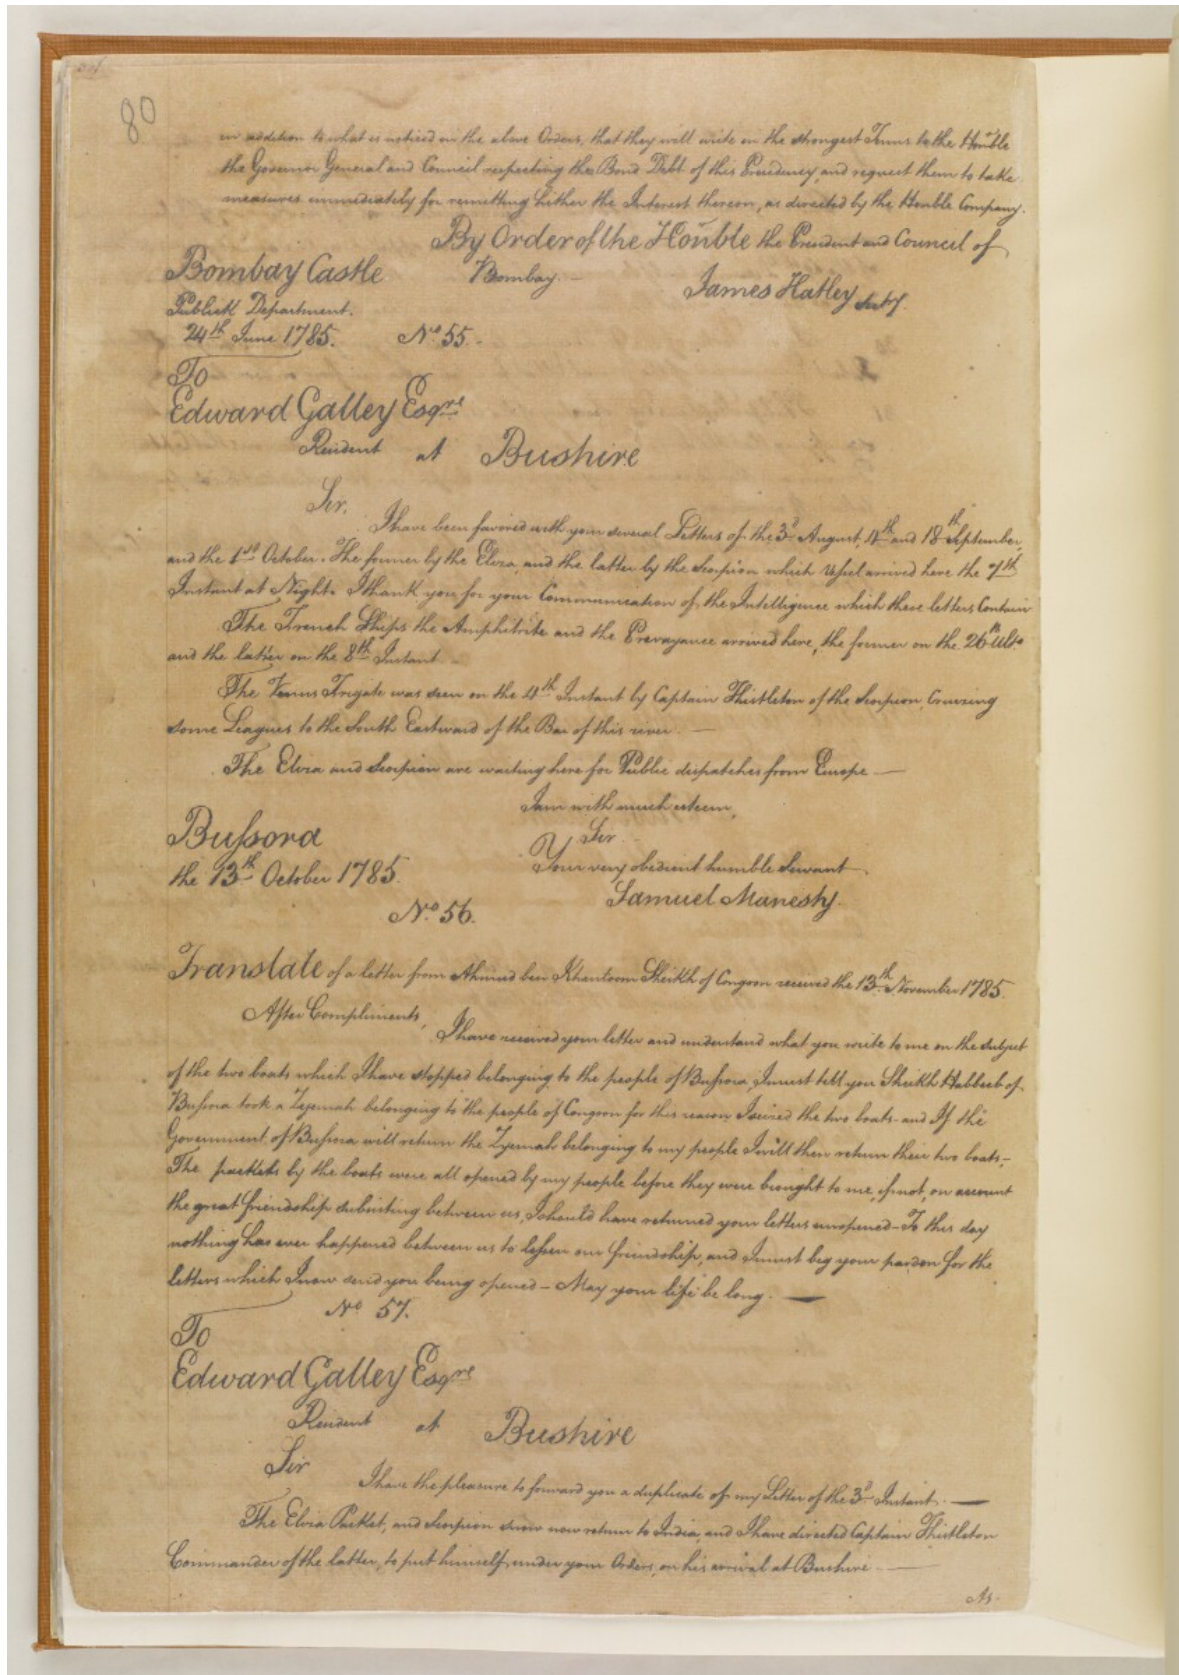 80
in addition to what is noticed in the above Orders, that they will write in the strongest Terms to the Honble
the Governor General and Council respecting the Bond Debt of this Presidency, and request them to take
measures immediately for remitting hither the Interest thereon, as directed by the Honble Company.
By Order of the Honble the President and Council of
Bombay Castle Bombay.—
James Hatley Secty.
Publick Department.
24th June 1785. No. 55.-
To
Edward Galley Esqre
Resident at Bushire
Sir,
I have been favored with your several Letters of the 3d August, 4th and 18th September,
and the 1st October. The former by the Elvira, and the latter by the Scorpion which Vessel arrived here the 7th
Instant at Night. I thank you for your Communication of the Intelligence which these letters Contain
The French Ships the Amphitrite and the Prevoyance arrived here, the former on the 26th Ulto
and the latter on the 8th Instant—
The Venus Frigate was seen on the 4th Instant by Captain Thistleton of the Scorpion, Cruizing
some Leagues to the South Eastward of the Bar of this river.—
The Elvira and Scorpion are waiting here for Public dispatches from Europe—
I am with much esteem,
Sir
Bussora
Your very obedient humble Servant
the 13th October 1785.
Samuel Manesty.
No. 56.
Translate of a letter from Ahmed ben Khantoom Sheikh of Congoon received the 13th November 1785.
After Compliments,
I have received your letter and understand what you write to me on the subject
of the two boats which I have stopped belonging to the people of Bussora, I must tell you Sheikh Habbeeb of
Bussora took a belonging to the people of Congoon for this reason I seized the two boats - and If the
Government of Bussora will return the belonging to my people I will then return their two boats,-
The packets by the boats were all opened by my people before they were brought to me, if not, on account
the great friendship subsisting between us, I should have returned your letters unopened - To this day
nothing has ever happened between us to lessen our friendship, and I must beg your pardon for the
letters which I now send you being opened - May your life be long.—
No 57.
To
Edward Galley Esqre
Resident at Bushire
Sir
I have the pleasure to forward you a duplicate of my Letter of the 3d Instant.—
The Elvira Packet, and Scorpion Snow now return to India, and I have directed Captain Thistleton
Commander of the latter, to put himself under your Orders, on his arrival at Bushire.—
As